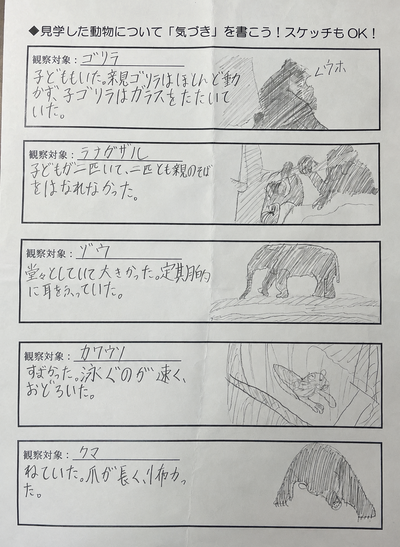 ◆見学した動物について「気づき」を書こう！スケッチもOK！
観察対象：ゴリラ
子どももいた。親ゴリラはほとんど動
かず、子ゴリラはガラスをたたいて
いた。
ウホ
観察対象：ラナグザル
子どもが二匹いて、二匹とも親のそば
をはなれなかった。
観察対象：ゾウ
堂々としていて大きかった。定期的
に耳をふっていた。
観察対象：カワウソ
すばやかった。泳ぐのが速く、
おどろいた。
観察対象：クマ
ねていた。爪が長く、怖かっ
た。